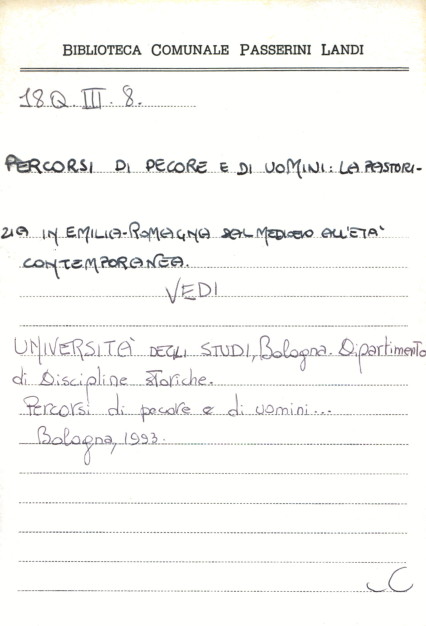 BIBLIOTECA COMUNALE PASSERINI LANDI
18Q. III. 8.
PERCORSI DI PECORE E DI UOMINI: LA PASTORI-
ZIA IN EMILIA-ROMAGNA DAL MEDIOEVO ALL'ETA'
CONTEMPORANEA.
VEDI
UNIVERSITA' DEGLI STUDI, Bologna. Dipartimento
di Discipline storiche.
Percorsi di pecore e di uomini...
Bologna, 1993.